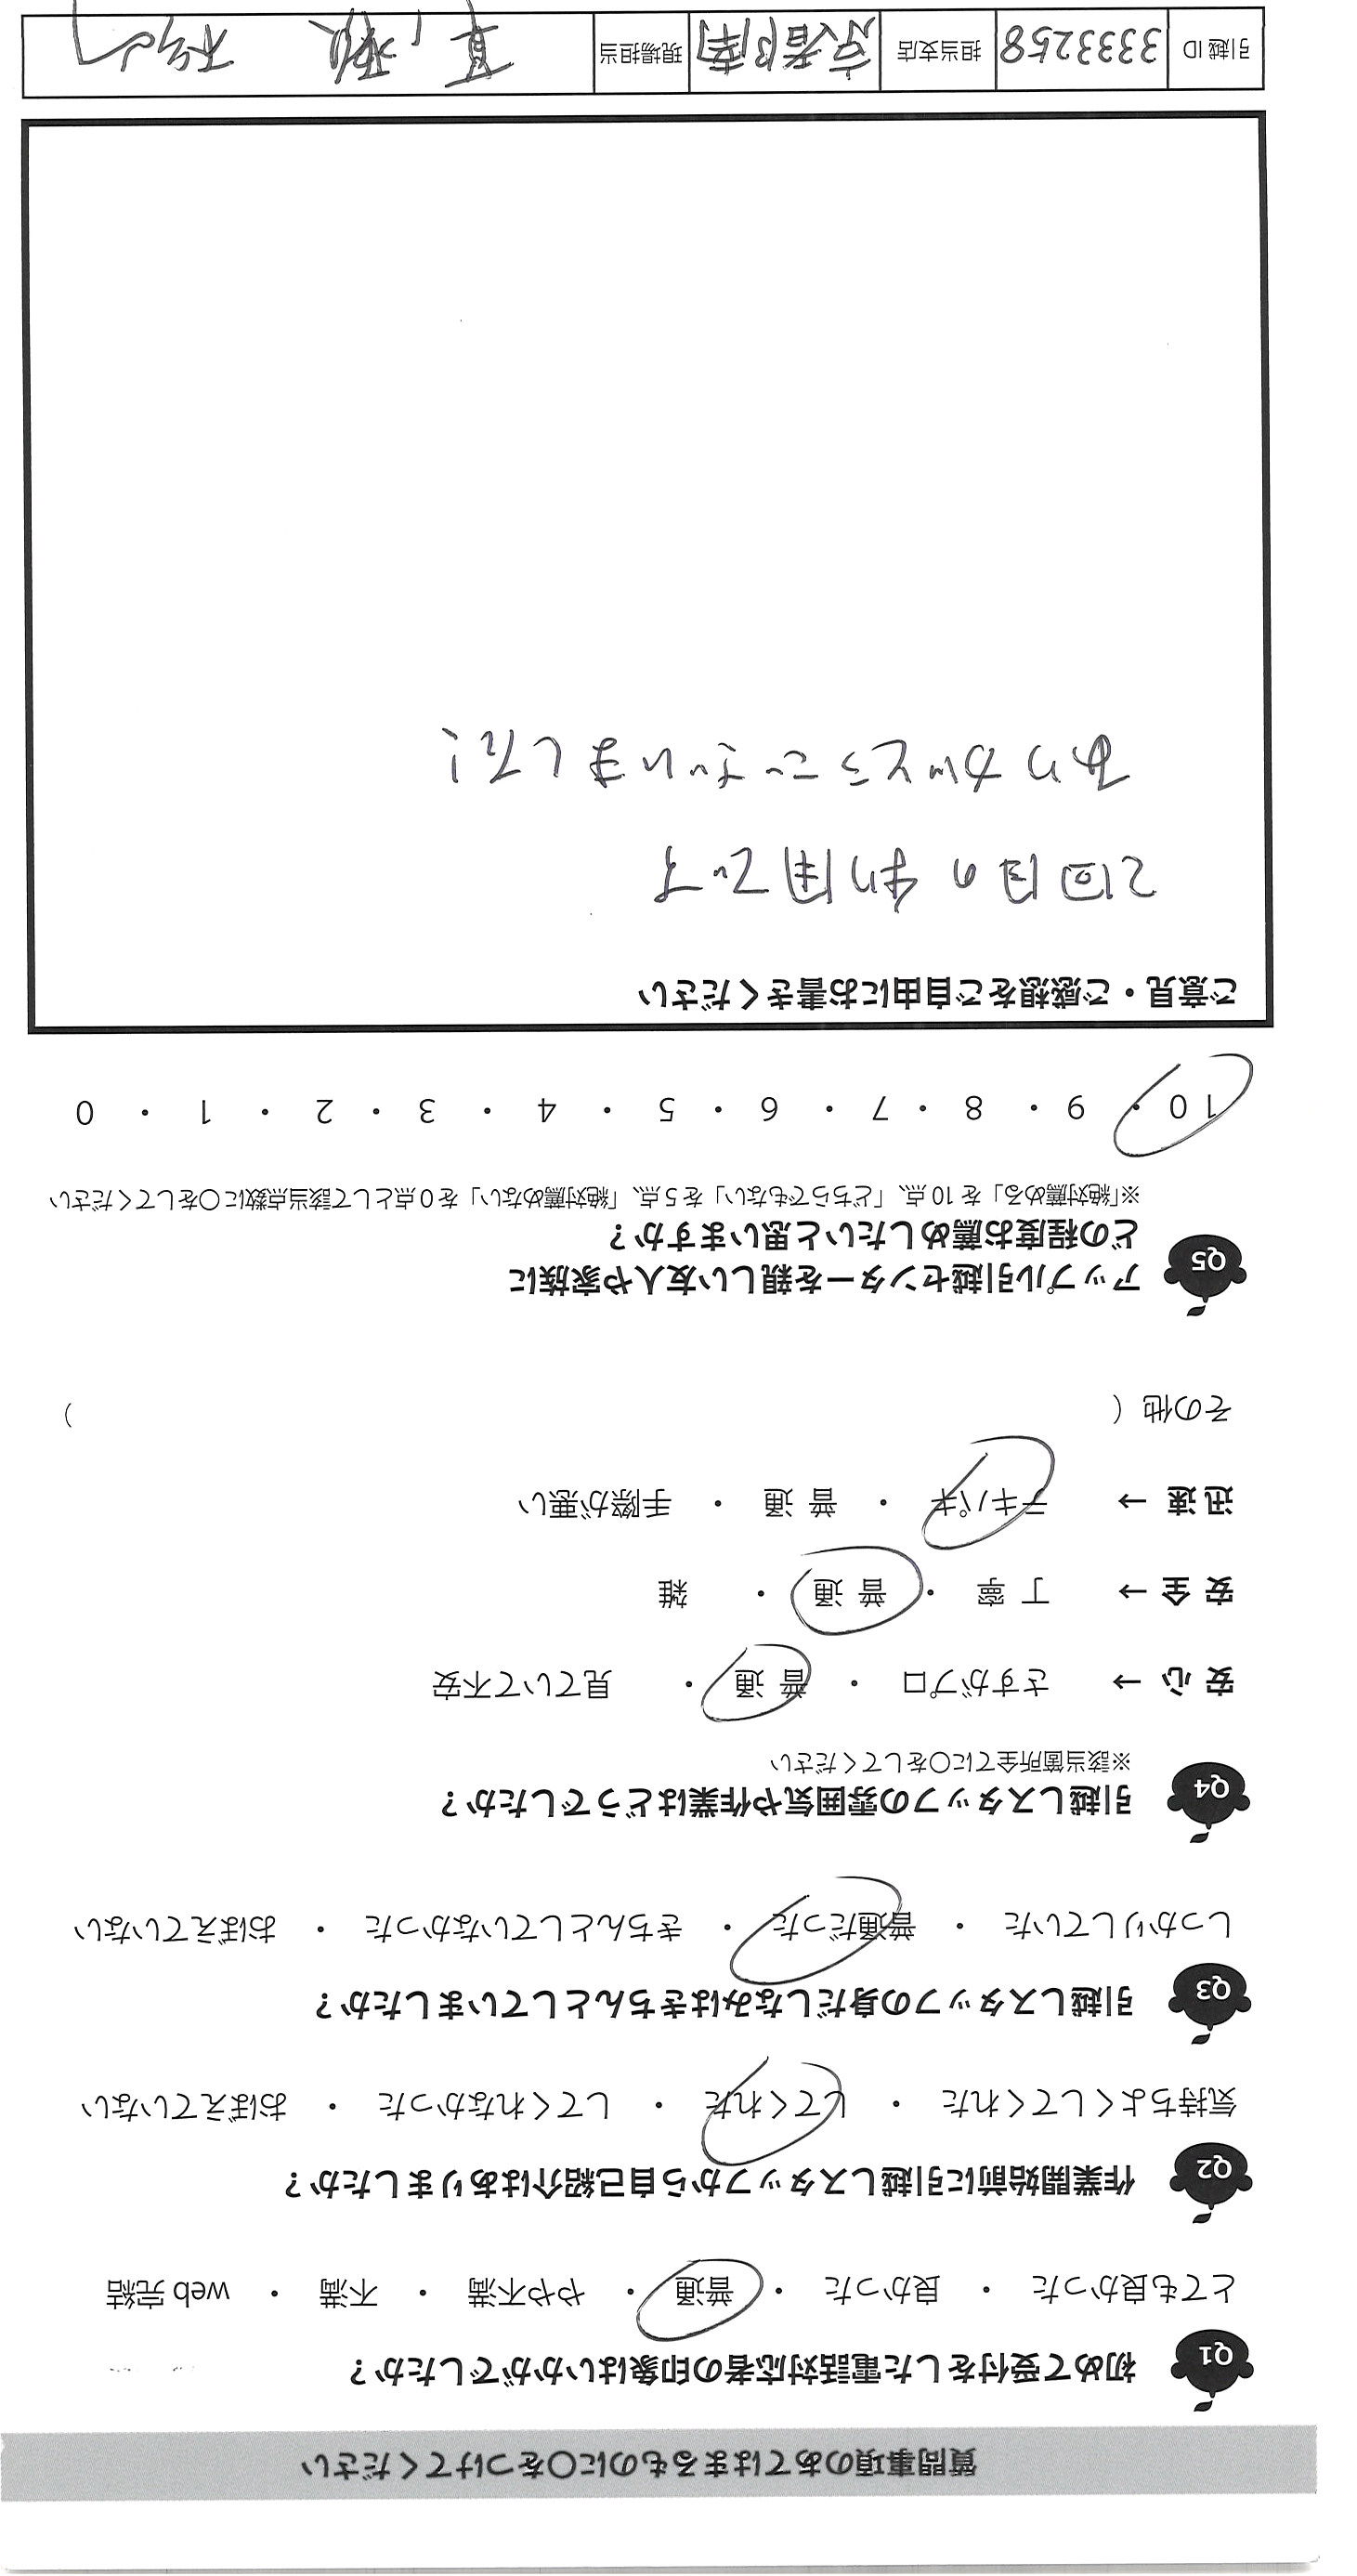 質問事項のあてはまるものに○をつけてください
Q1 初めて受付をした電話対応者の印象はいかがでしたか？
とても良かった ・ 良かった ・ 普通 ・ やや不満 ・ 不満 ・ web 完結
Q2 作業開始前に引越しスタッフから自己紹介はありましたか？
気持ちよくしてくれた ・ してくれた ・ してくれなかった ・ おぼえていない
Q3 引越しスタッフの身だしなみはきちんとしていましたか？
しっかりしていた ・ 普通だった ・ きちんとしていなかった ・ おぼえていない
Q4 引越しスタッフの雰囲気や作業はどうでしたか？
※該当箇所全てに○をしてください
安 心 → さすがプロ ・ 普 通 ・ 見ていて不安
安 全 → 丁 寧 ・ 普 通 ・ 雑
迅 速 → テキパキ ・ 普 通 ・ 手際が悪い
その他（ ）
Q5 アップル引越センターを親しい友人や家族に
どの程度お薦めしたいと思いますか？
※「絶対薦める」を 10 点、「どちらでもない」を 5 点、「絶対薦めない」を 0 点として該当点数に○をしてください
10 ・ 9 ・ 8 ・ 7 ・ 6 ・ 5 ・ 4 ・ 3 ・ 2 ・ 1 ・ 0
ご意見・ご感想をご自由にお書きください
2回目の利用です
ありがとうございました！
引越 ID 3333258 担当支店 京都南 現場担当